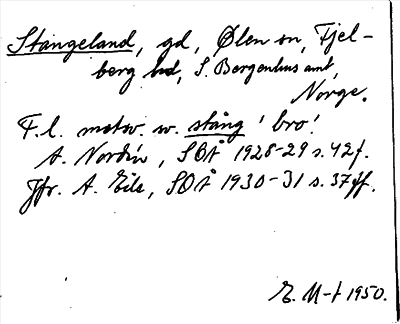 Stangeland, gd, Ølen sn, Fjel-
berg hd, S. Bergenhus amt,
Norge.
F.l. motsv. sv. stång 'bro'.
A. Nordén, SOÅ 1928-29 s. 42 f.
Jfr. A. Eile, SOÅ 1930-31 s. 37 ff.
E. M-t 1950.